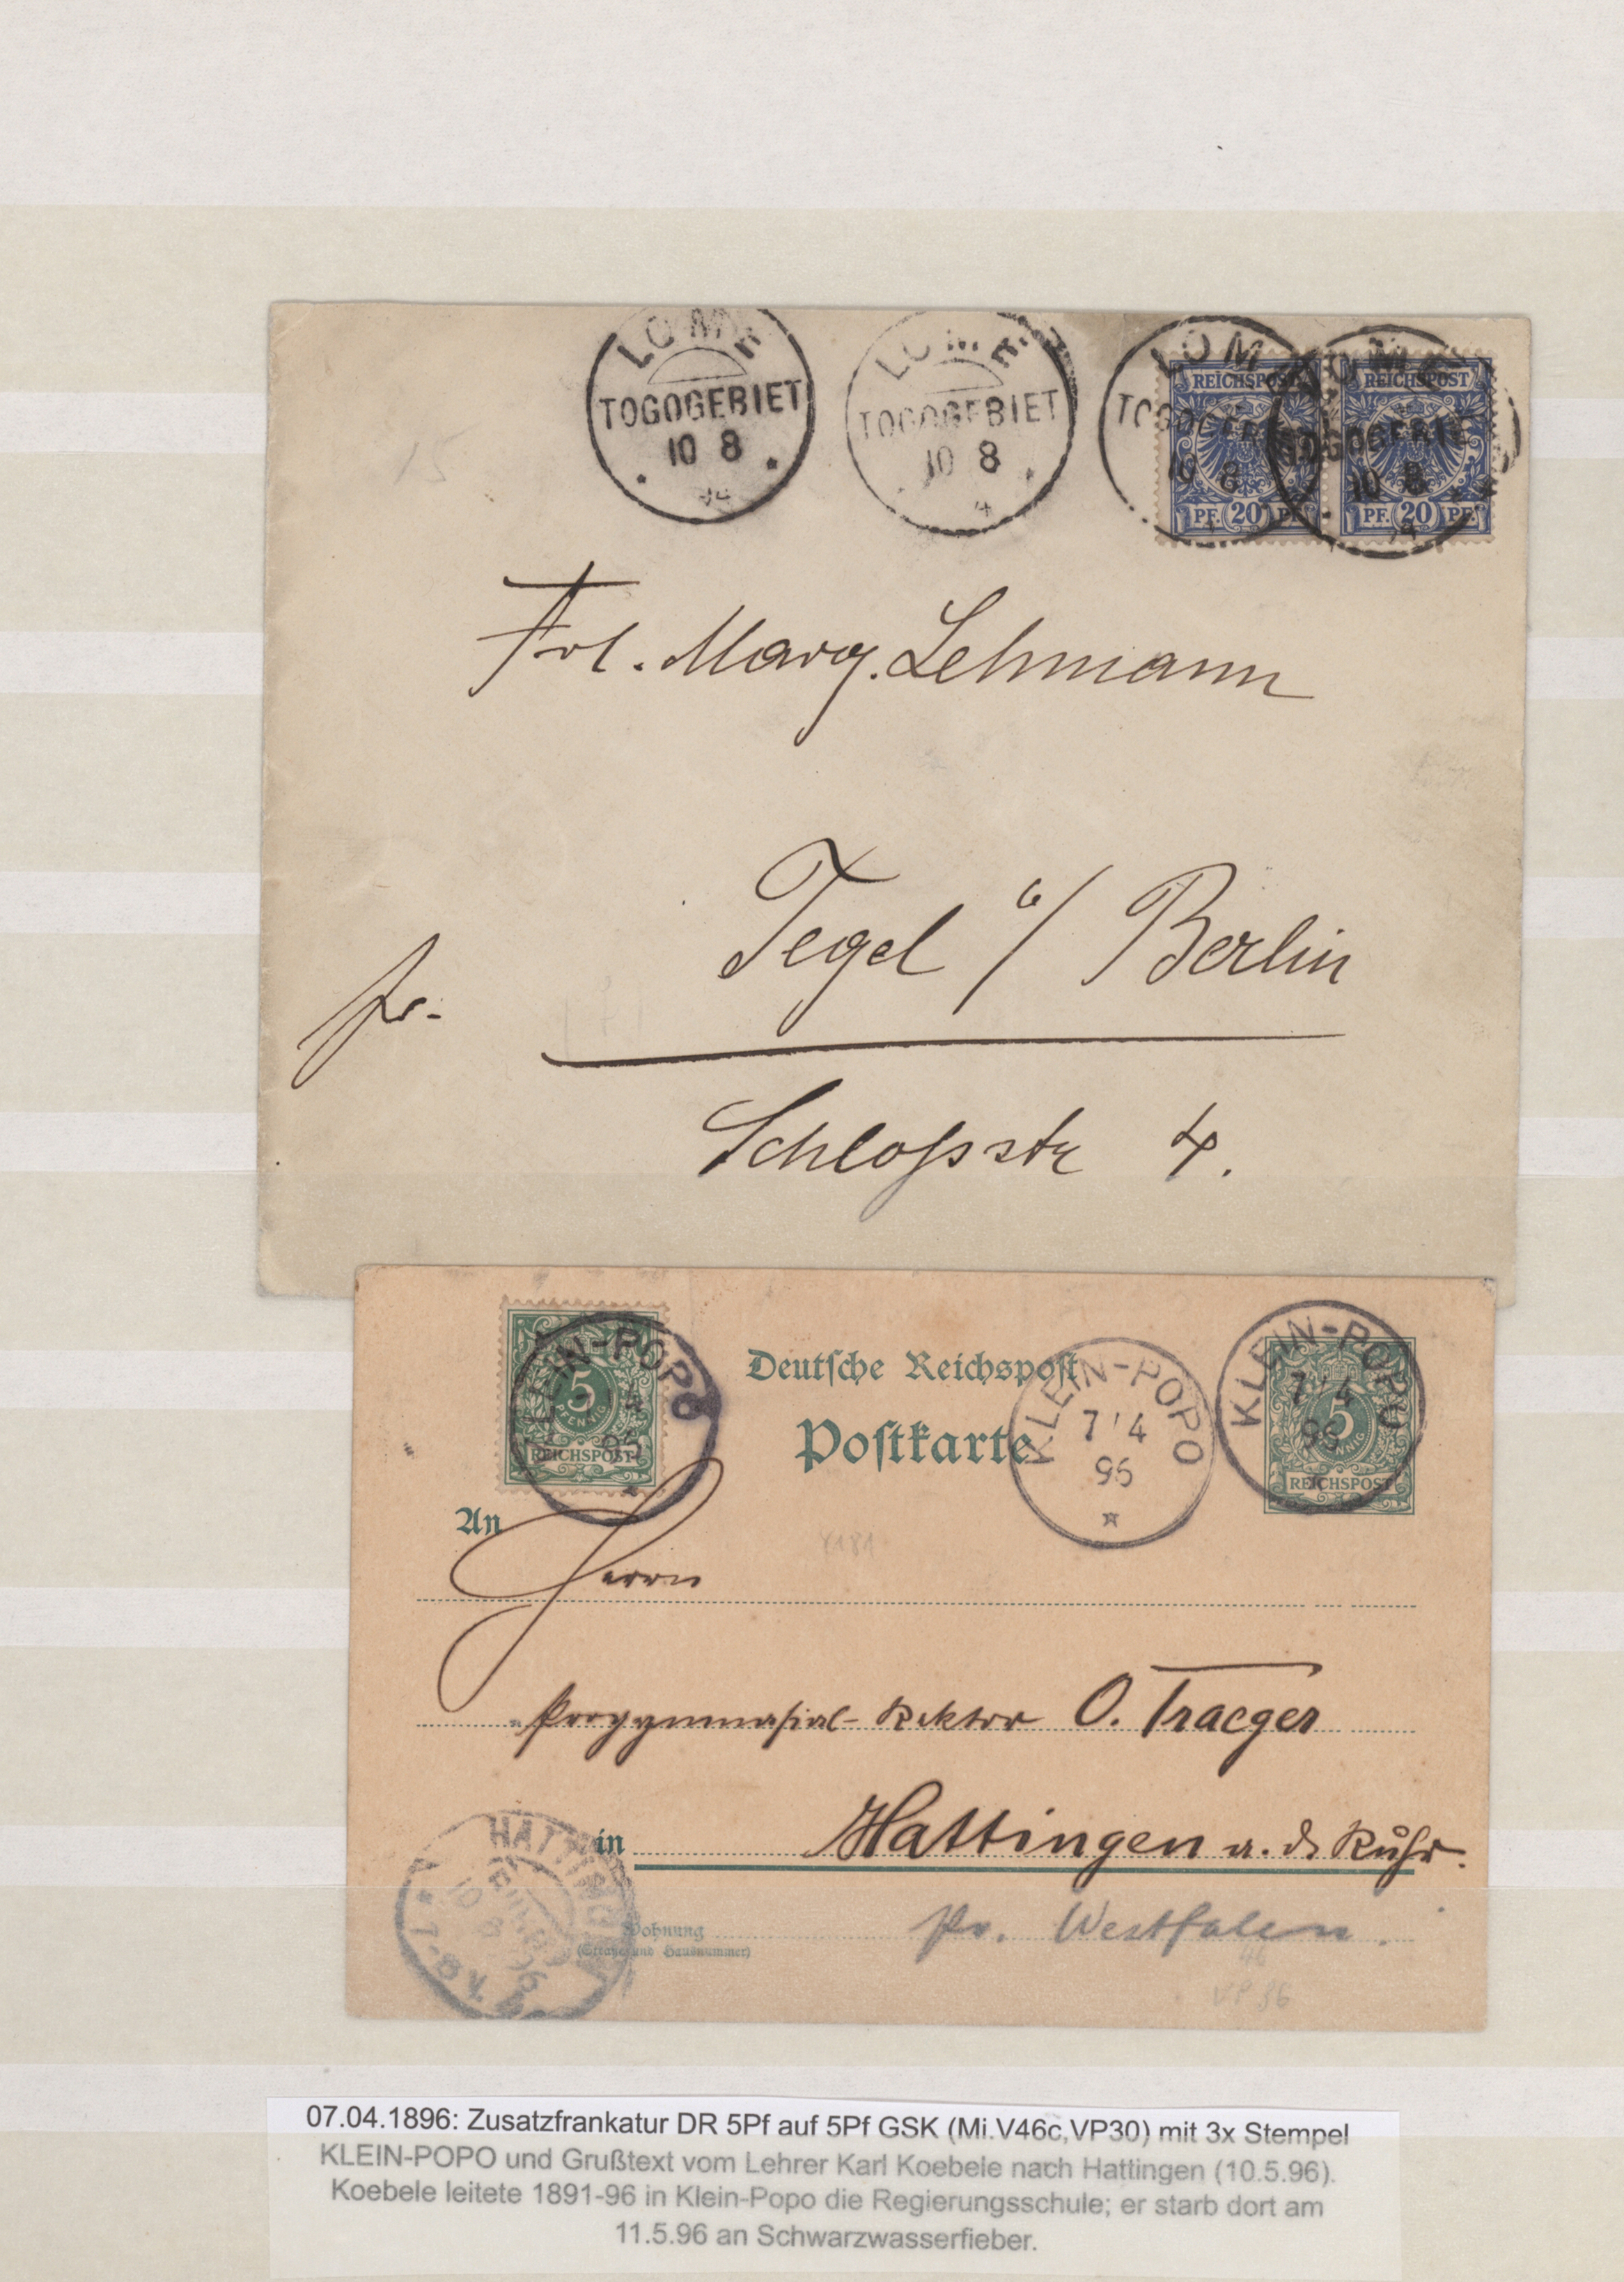 LOME
TOGOGEBIET
10 8
94
LOME
TOGOGEBIET
10 8
4
LOME
TOGOGEBIET
10 8
LOME
TOGOGEBIET
10 8
REICHSPOST
PF. 20 PF.
REICHSPOST
PF. 20 PF.
15
Frl. Marg. Lehmann
Tegel b/ Berlin
fr.
Schloßstr 4.
KLEIN-POPO
5
PFENNIG
REICHSPOST
Deutsche Reichspost
Postkarte
KLEIN-POPO
7/4
96
KLEIN-POPO
7/4
96
5
PFENNIG
REICHSPOST
An
Herrn
Progymnasial-Rektor O. Traeger
in Hattingen a. d. Ruhr.
HATTINGEN
RUHR
10 5 96
7-8 V.
Wohnung
(Straße und Hausnummer)
Pr. Westfalen.
07.04.1896: Zusatzfrankatur DR 5Pf auf 5Pf GSK (Mi.V46c,VP30) mit 3x Stempel
KLEIN-POPO und Grußtext vom Lehrer Karl Koebele nach Hattingen (10.5.96).
Koebele leitete 1891-96 in Klein-Popo die Regierungsschule; er starb dort am
11.5.96 an Schwarzwasserfieber.